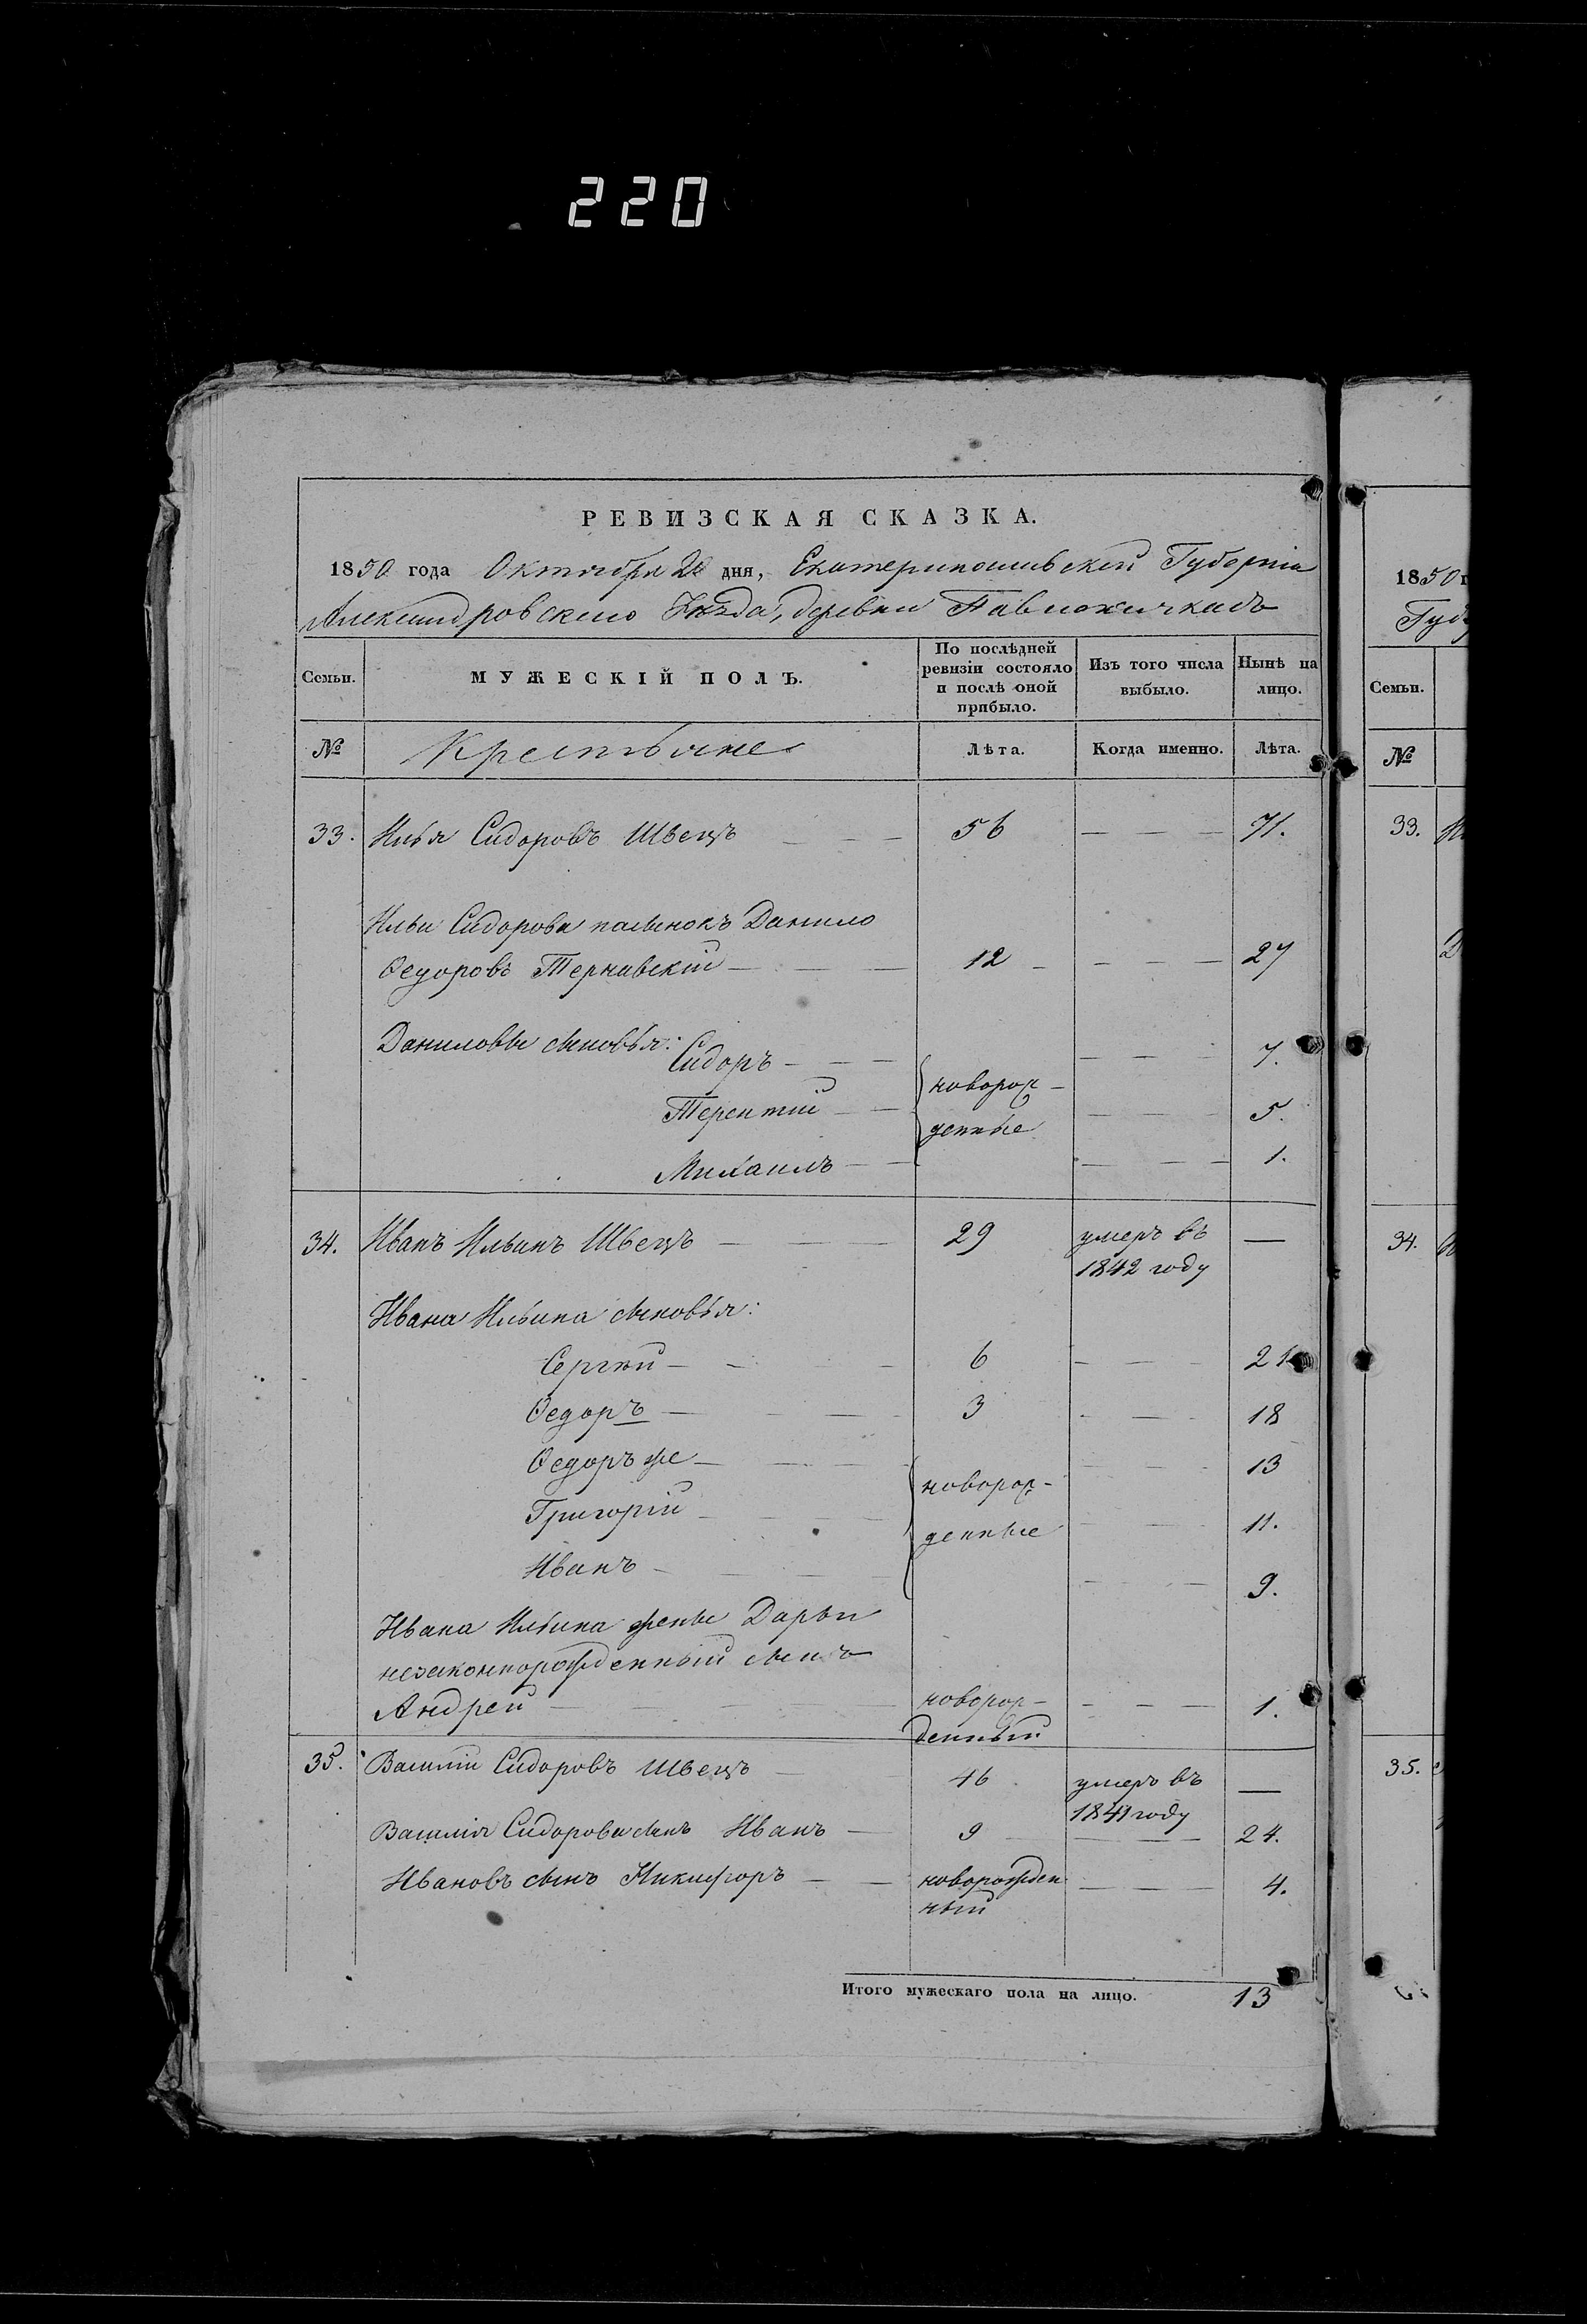 220
РЕВИЗСКАЯ СКАЗКА.
1850 года Октября 20 дня, Екатеринославской Губерніи
Александровскаго Уѣзда, деревни Павлокичкасъ
Семьи. МУЖЕСКІЙ ПОЛЪ. По послѣдней ревизіи состояло и послѣ оной прибыло. Изъ того числа выбыло. Нынѣ на лицо.
№ Крестьяне Лѣта. Когда именно. Лѣта.
33. Илья Сидоровъ Швецъ 56 — — — 71.
Ильи Сидорова пасынокъ Данило
Ѳедоровъ Тернавскій 12 — — — 27
Даниловы сыновья:
Сидоръ — — — 7.
Терентій {новорож- — — — 5.
денные
Михаилъ — — — 1.
34. Иванъ Ильинъ Швецъ 29 умеръ въ —
1842 году
Ивана Ильина сыновья:
Сергѣй 6 — — — 21
Ѳедоръ 3 — — — 18
Ѳедоръ же — — — 13
{новорож-
Григорій — — — 11.
денные
Иванъ — — — 9.
Ивана Ильина жены Дарьи
незаконнорожденный сынъ
Андрей новорож- — — — 1.
денный
35. Василій Сидоровъ Швецъ 46 умеръ въ —
1841 году
Василія Сидорова сынъ Иванъ 9 — — 24.
Ивановъ сынъ Никифоръ новорожден — — 4.
ный
Итого мужескаго пола на лицо. 13
1850 г
Губ
Семьи.
№
33.
34.
35.